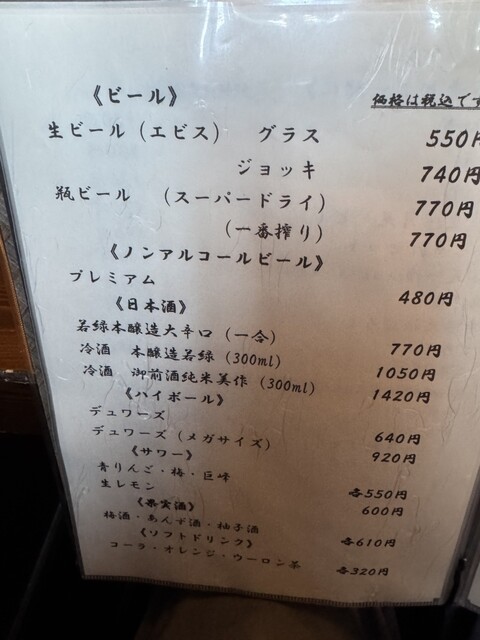 《ビール》 価格は税込です
生ビール（エビス） グラス 550円
ジョッキ 740円
瓶ビール （スーパードライ） 770円
（一番搾り） 770円
《ノンアルコールビール》
プレミアム 480円
《日本酒》
若緑本醸造大辛口（一合） 770円
冷酒 本醸造若緑（300ml） 1050円
冷酒 御前酒純米美作（300ml） 1420円
《ハイボール》
デュワーズ 640円
デュワーズ（メガサイズ） 920円
《サワー》
青りんご・梅・巨峰 各550円
生レモン 600円
《果実酒》
梅酒・あんず酒・柚子酒 各610円
《ソフトドリンク》
コーラ・オレンジ・ウーロン茶 各320円